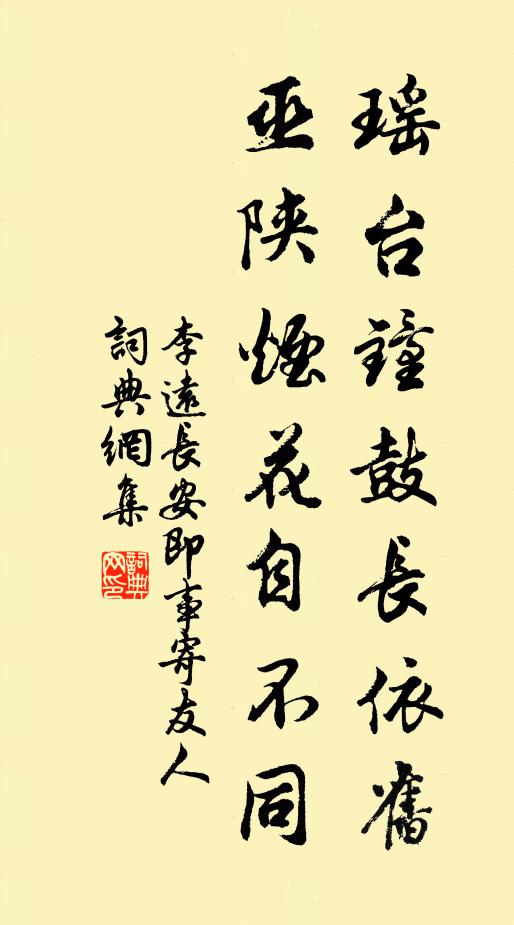 瑶台鐘鼓長依舊
巫陝煙花自不同
李遠長安即事寄友人
詞典網集
詞典网印